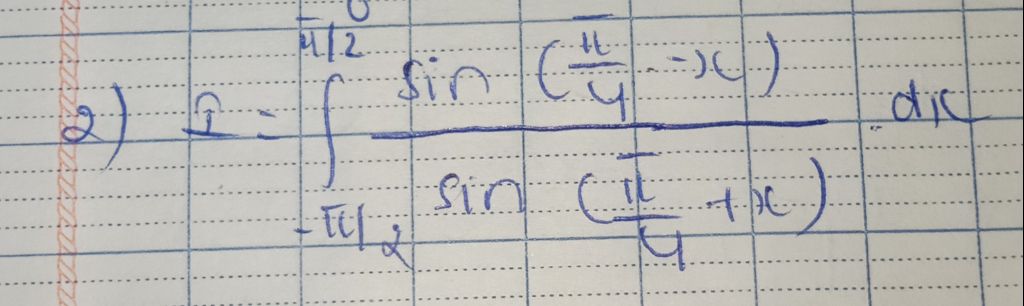 2) I = ∫_{-π/2}^{π/2} \frac{sin (\frac{π}{4} - x)}{sin (\frac{π}{4} + x)} . dx